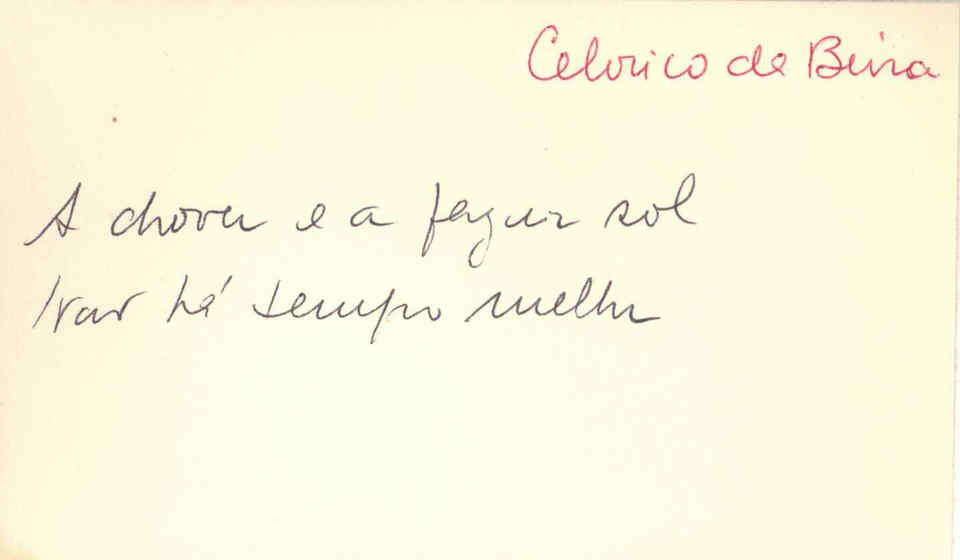 Celorico da Beira
A chover e a fazer sol
Não há tempo melhor